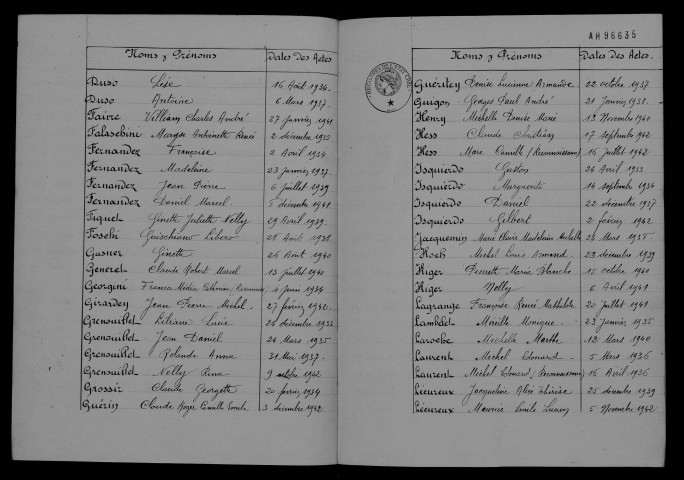 Noms, Prénoms Dates des Actes
Duso Lise 16 Août 1934.
Duso Antoine 6 Mars 1937.
Faivre William Charles André 27 Janvier 1941
Falaschini Antoinette Renée 2 décembre 1935
Fernandez Françoise 2 Avril 1934
Fernandez Madeleine 23 Janvier 1937.
Fernandez Jean Pierre 6 Juillet 1939
Fernandez Daniel Marcel 5 décembre 1941.
Ginette Juliette Nelly 29 Avril 1939.
Foschi Libero Août
Gusner Ginette 26 Août 1940
Generet Claude Robert Marcel 13 Juillet 1940
Georgine 4 Juin 1934
Girardey Jean Pierre Michel 27 février 1942.
Grenouillet Liliane Lucie décembre 1933
Grenouillet Jean Daniel 24 Mars 1935
Grenouillet Rolande Anna 31 Mai 1937.
Grenouillet Nelly 9 octobre 1942
Grossir Claude Georgette 20 février 1934
Guérin Claude Roger Camille Emile 3 décembre 1942
AH96635
Noms, Prénoms Dates des Actes.
Guéritey Denise Lucienne Armande 22 octobre 1937
Guigon Georges Paul André 21 Janvier
Henry Michelle Denise Marie 13 Novembre 1940
Hess Claude 17 Septembre 1942
Hess Marc Camille (Reconnaissance) 16 Juillet 1942
Isquierdo 24 Avril 1933
Isquierdo Marguerite 14 Septembre 1934
Isquierdo Daniel 22 décembre 1937
Isquierdo Gilbert 2 février 1942
Jacquemin Marie Claire Madeleine Michelle 24 Mars 1935.
Hoch Michel Louis Armand 23 décembre 1939
Kiger Pierrette Marie Blanche 15 octobre 1940
Kiger Nelly 6 Avril 1941
Lagrange Françoise Renée Mathilde 20 Juillet 1941
Lamblet Mireille Monique 23 Janvier 1935
Laroche Michelle Marthe 12 Mars 1940
Laurent Michel Edouard 5 Mars 1936
Laurent Michel Edouard (Reconnaissance) 16 Avril 1936
Lieureux Jacqueline Alice Thérèse 25 décembre 1939
Lieureux Maurice Emile Lucien 5 Novembre 1942